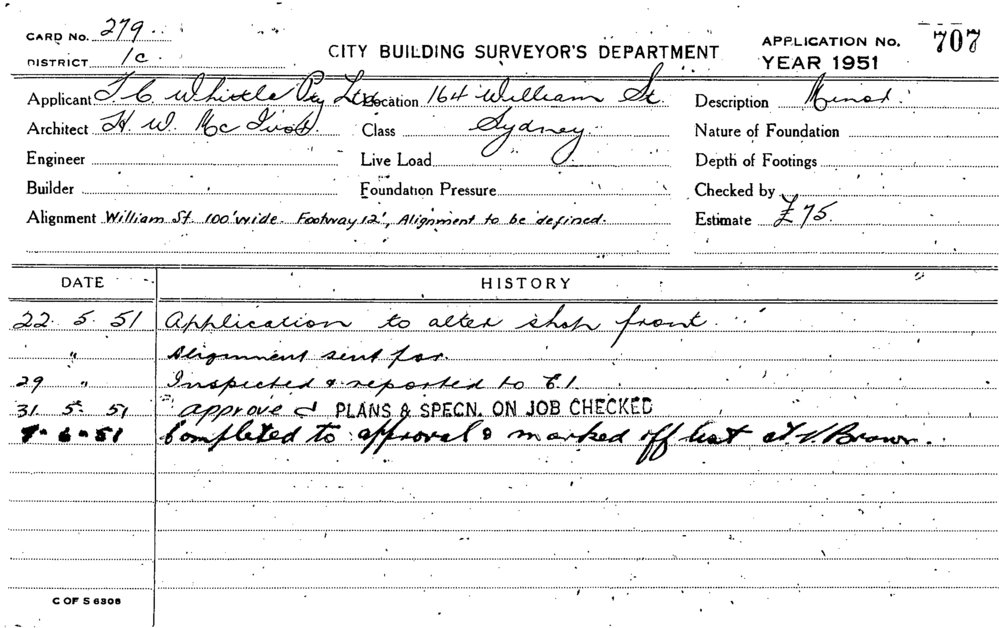 CARD No. 279
DISTRICT 1c
CITY BUILDING SURVEYOR'S DEPARTMENT
APPLICATION No. 707
YEAR 1951
Applicant T. C. Whittle Pty Ltd Location 164 William St. Description Minor.
Architect H. W. Mc Class Sydney Nature of Foundation
Engineer Live Load Depth of Footings
Builder Foundation Pressure Checked by
Alignment William St. 100' wide. Footway 12', Alignment to be defined. Estimate £75
DATE HISTORY
22. 5. 51 Application to alter shop front.
" Alignment sent for.
29 " Inspected & reported to
31. 5. 51 approved PLANS & SPECN. ON JOB CHECKED
7-6-51 Completed to approval & marked off list Brown.
C OF S 6308